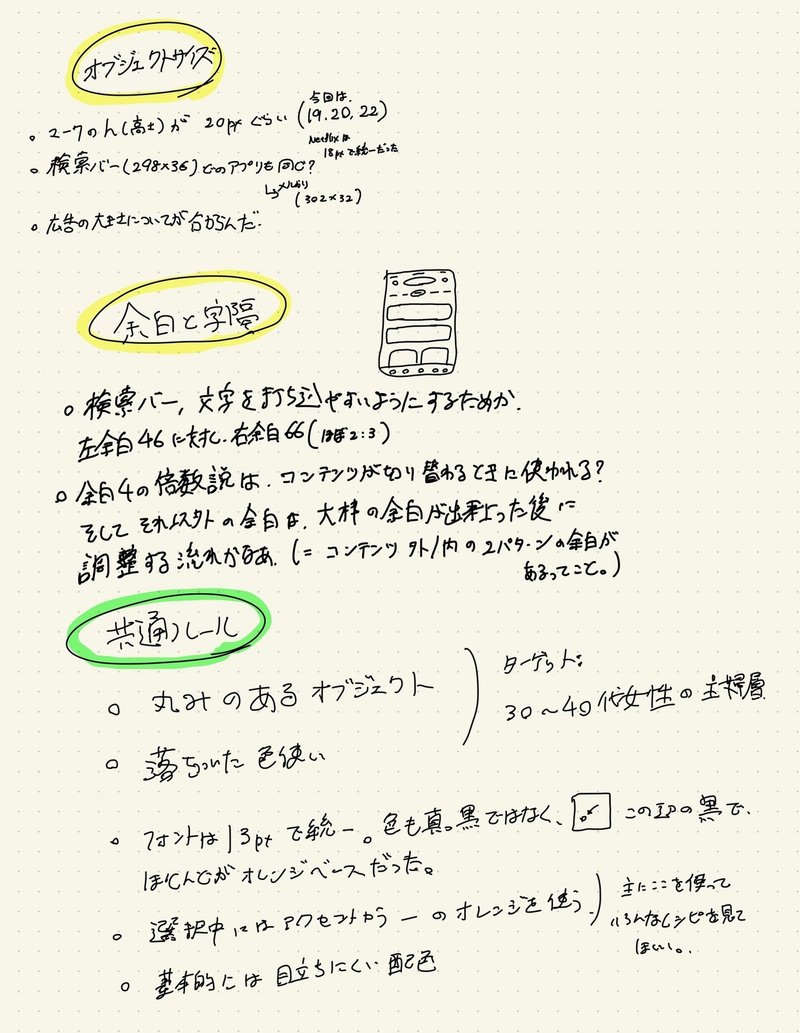 オブジェクトサイズ
マークのh(高さ)が 20pxぐらい (今回は、19.20.22)
Netflixは
18pxで統一だった
検索バー(298×36)どのアプリも同じ?
↳メルカリ
(302×32)
広告の大きさについてが分からんだ.
余白と字間
検索バー, 文字を打ち込やすいようにするためか.
左余白46に対し、右余白66(ほぼ2:3)
余白4の倍数説は、コンテンツが切り替わるときに使われる?
そして それ以外の余白は、大枠の余白が出来上った後に
調整する流れかなあ. (= コンテンツ 外/内の2パターンの余白が
あるってこと。)
共通ルール
丸みのあるオブジェクト
ターゲット:
30〜40代女性の主婦層
落ちついた色使い
フォントは13ptで統一。色も真っ黒ではなく、 この の黒で、
ほとんどがオレンジベースだった。
選択中にはアクセントカラーのオレンジを使う.
主にここを使って
いろんなレシピを見て
ほしい。
基本的には目立ちにくい配色